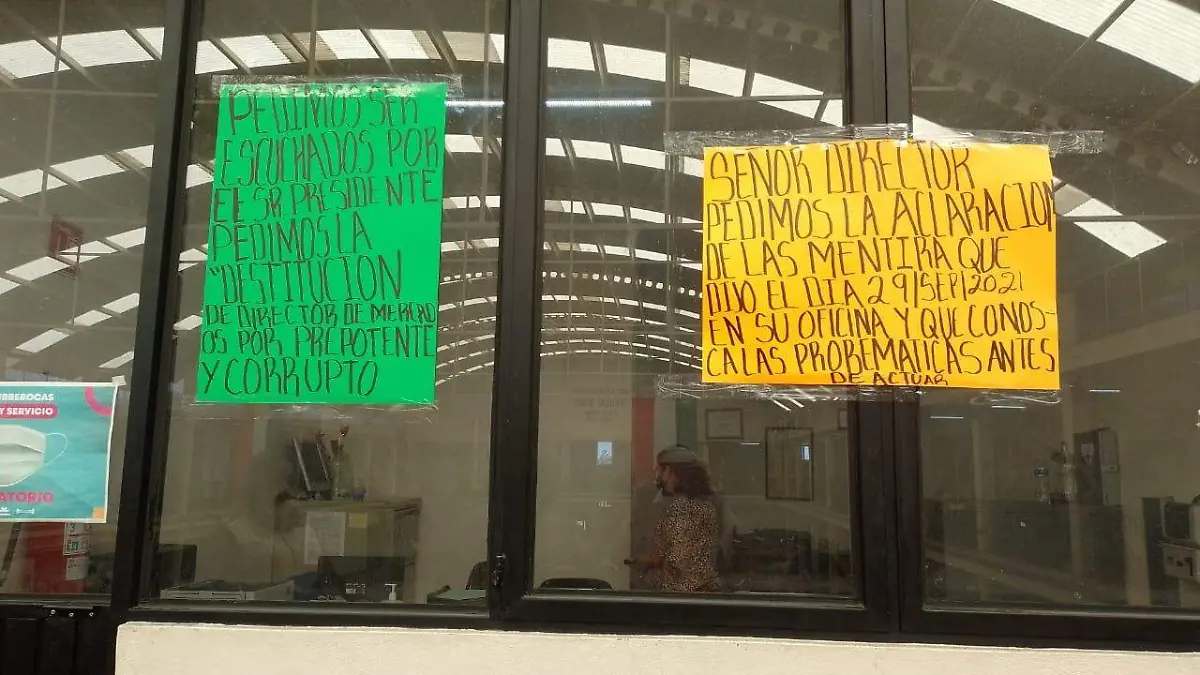 PEDIMOS SER
ESCUCHADOS POR
EL SR PRESIDENTE
PEDIMOS LA
"DESTITUCION
DE DIRECTOR DE MERCAD
OS POR PREPOTENTE
Y CORRUPTO
SEÑOR DIRECTOR
PEDIMOS LA ACLARACION
DE LAS MENTIRA QUE
DIJO EL DIA 29/SEP/2021
EN SU OFICINA Y QUE CONOS-
CA LAS PROBEMATICAS ANTES
DE ACTUAR
UBREBOCAS
Y SERVICIO
ATORIO